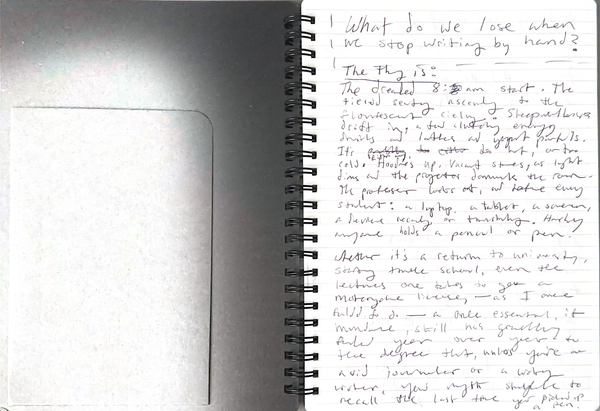 What do we lose when
we stop writing by hand?
The thing is:
The dreaded 8: am start. The
tiered seating ascending to the
fluorescent ceiling. Sheepned
drift in, a few clutching energy
drinks and lattes and yogurt parfaits.
It's too hot, or too
cold. Hoodies up. Vacant stares, as light
dims and the projector dominates the room.
The professor looks out, and before every
student: a laptop, a tablet, a screen,
a device or. Hardly
anyone holds a pencil or pen.
Whether it's a return to university,
trade school, even the
lectures one takes to get a
motorcycle license, — as I once
to do — a once essential, if
mundane, skill has gradually
faded year over year to
the degree that, unless you're an
avid journaler or a
writer, you might struggle to
recall the last time you picked up
a pen.